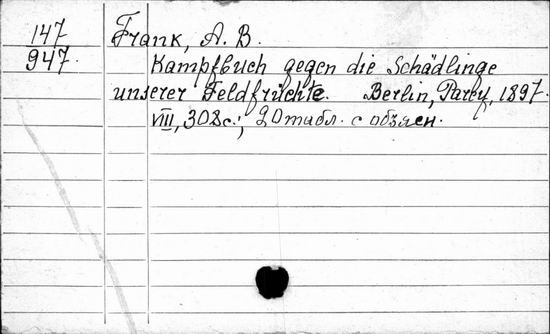 147
947.
Frank, A. B.
Kampfbuch gegen die Schädlinge
unserer Feldfrüchte. Berlin, Parey, 1897.
VIII, 308 с.; 20 табл. с объясн.